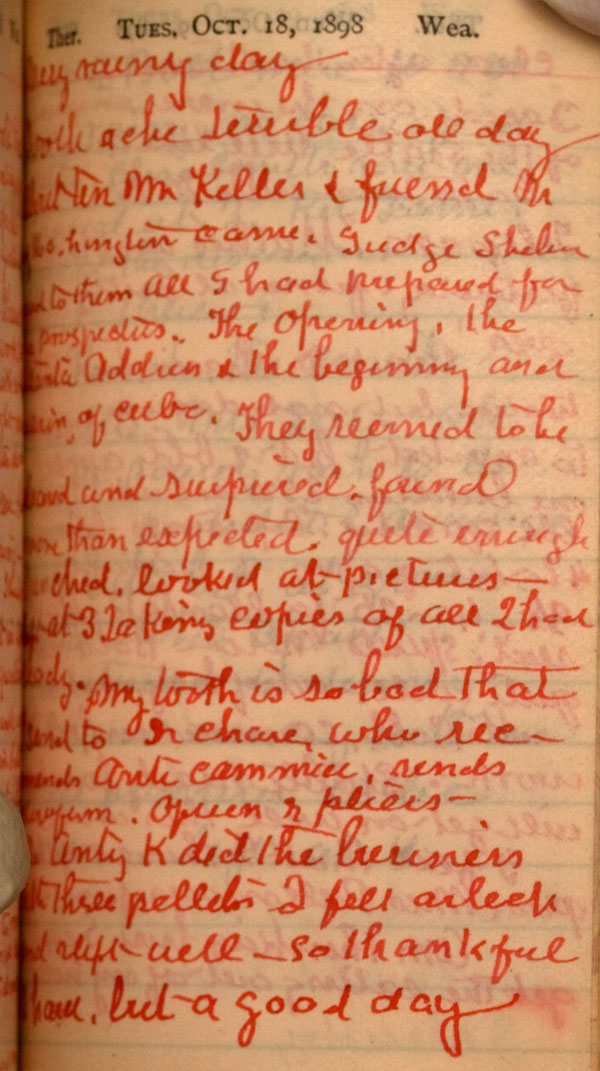 Ther. TUES. OCT. 18, 1898 Wea.
rainy day
ache terrible all day
ten Mr Keller & friend Mr
came. Judge
to them all I had prepared for
prospectus. The Opening, the
Address & the beginning and
of cuba. They seemed to be
and surprised. found
more than expected. quite enough
looked at pictures—
at 3 taking copies of all I had
My tooth is so bad that
send to Dr who rec-
Anti cammia, sends
opium & pliers—
Anty K did the business
three pellets I fell asleep
slept well — so thankful
have, but a good day